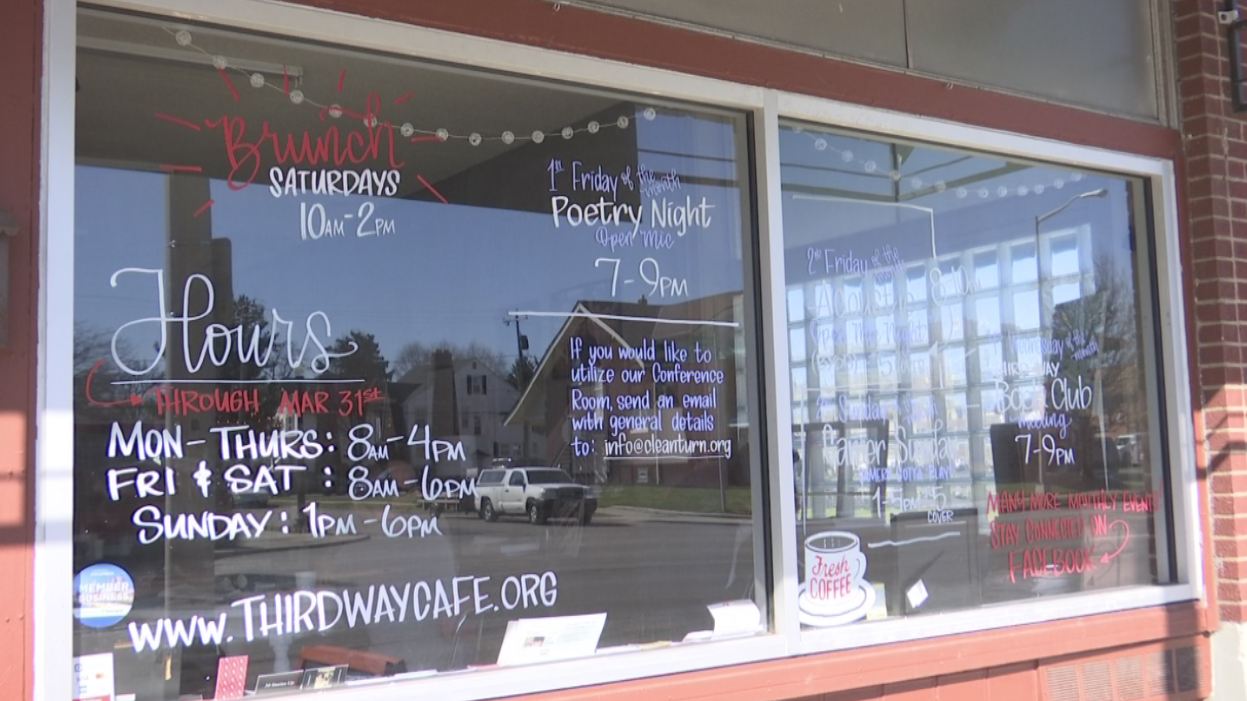 Brunch
SATURDAYS
10AM-2PM
Hours
THROUGH MAR 31st
MON-THURS: 8AM-4PM
FRI & SAT : 8AM-6PM
SUNDAY: 1PM-6PM
WWW.THIRDWAYCAFE.ORG
MEMBER
BUSINESS
1st Friday of the month
Poetry Night
Open Mic
7-9PM
If you would like to
utilize our Conference
Room, send an email
with general details
to: info@cleanturn.org
2nd Friday of the
Sunday
1-5PM $5
COVER
Fresh
COFFEE
Thursday of the month
Book Club
meeting
7-9PM
MANY MORE MONTHLY EVENTS
STAY CONNECTED ON
FACEBOOK